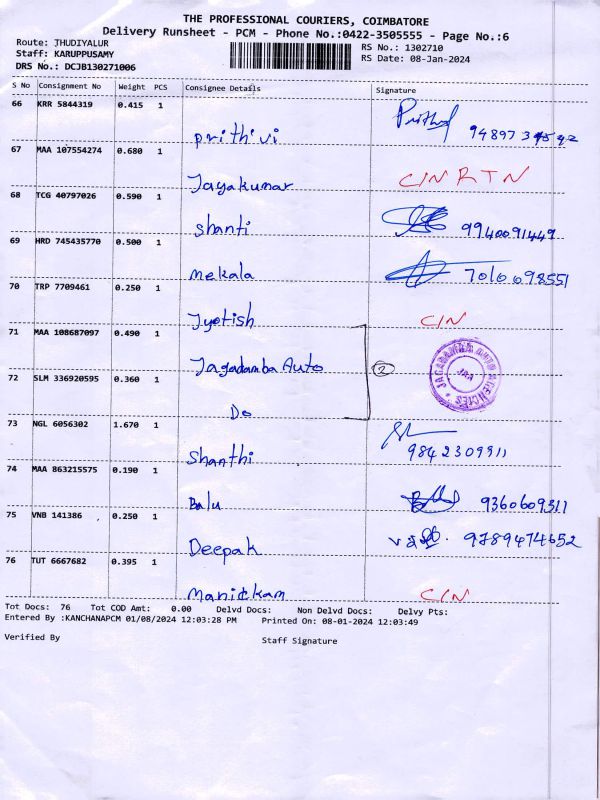 THE PROFESSIONAL COURIERS, COIMBATORE
Delivery Runsheet - PCM - Phone No.:0422-3505555 - Page No.:6
Route: THUDIYALUR
RS No.: 1302710
Staff: KARUPPUSAMY
RS Date: 08-Jan-2024
DRS No.: DCJB130271006
S No Consignment No Weight PCS Consignee Details Signature
66 KRR 5844319 0.415 1
Prithivi
67 MAA 107554274 0.680 1
Jayakumar CIN RTN
68 TCG 40797026 0.590 1
Shanti 9940091449
69 HRD 745435770 0.500 1
Mekala 7010698551
70 TRP 7709461 0.250 1
Jyotish CIN
71 MAA 108687097 0.490 1
Jagadamba Auto 2
JAGADAMBA AUTO AGENCIES
JAA
72 SLM 336920595 0.360 1
Do
73 NGL 6056302 1.670 1
Shanthi 9842309911
74 MAA 863215575 0.190 1
Balu 9360609311
75 VNB 141386 0.250 1
Deepak 9789474652
76 TUT 6667682 0.395 1
Manickam CIN
Tot Docs: 76 Tot COD Amt: 0.00 Delvd Docs: Non Delvd Docs: Delvy Pts:
Entered By :KANCHANAPCM 01/08/2024 12:03:28 PM Printed On: 08-01-2024 12:03:49
Verified By Staff Signature